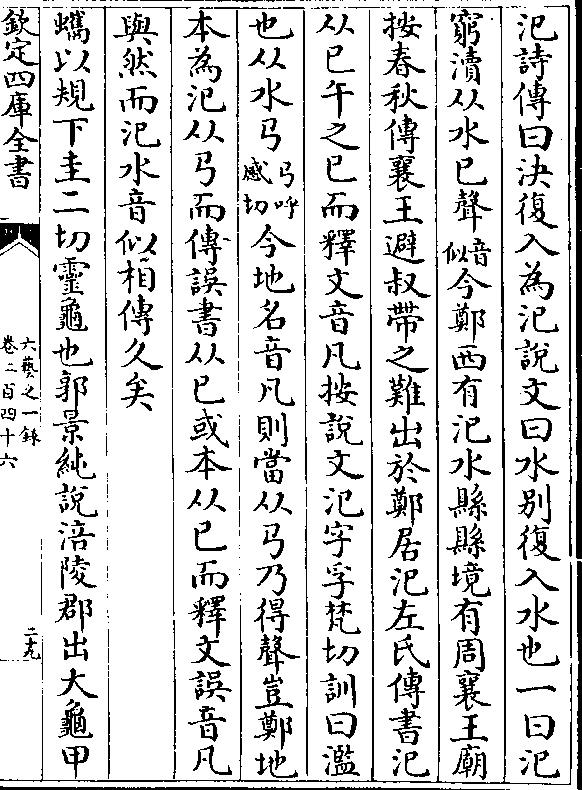 汜詩傳曰決復入為汜說文曰水别復入水也一曰汜
窮瀆从水巳聲音似今鄭西有汜水縣縣境有周襄王廟
按春秋傳襄王避叔帶之難出於鄭居汜左氏傳書汜
从巳午之巳而釋文音凡按說文氾字孚梵切訓曰濫
也从水㔾㔾呼感切今地名音凡則當从㔾乃得聲豈鄭地
本為氾从㔾而傳誤書从巳或本从巳而釋文誤音凡
與然而汜水音似相傳久矣
蠵以規下圭二切靈龜也郭景純說涪陵郡出大龜甲
欽定四庫全書
六藝之一錄
卷二百四十六
二十九